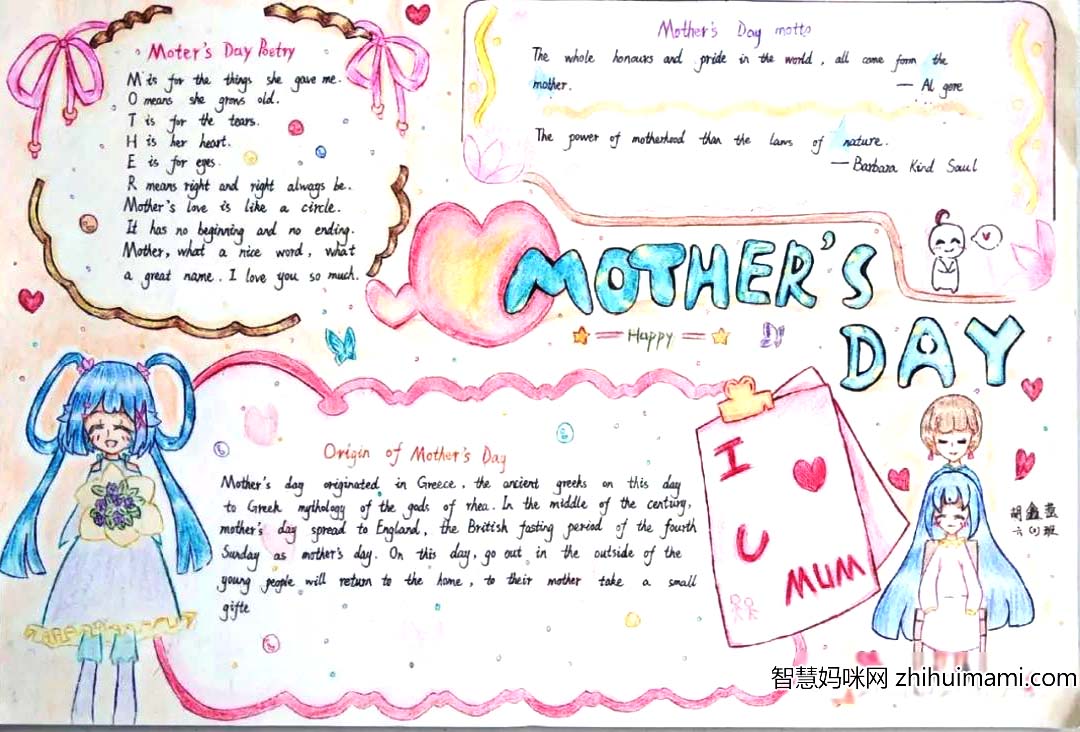 Moter's Day Poetry
M is for the things she gave me.
O means she grows old.
T is for the tears.
H is her heart.
E is for eyes.
R means right and right always be.
Mother's love is like a circle.
It has no beginning and no ending.
Mother, what a nice word, what
a great name. I love you so much.
Mother's Day motto
The whole honours and pride in the world, all come form the
mother. — Al gore
The power of motherhood than the laws of nature.
— Barbara Kind Saul
MOTHER'S
DAY
Happy
Origin of Mother's Day
Mother's day originated in Greece, the ancient greeks on this day
to Greek mythology of the gods of rhea. In the middle of the century,
mother's day spread to England, the British fasting period of the fourth
Sunday as mother's day. On this day, go out in the outside of the
young people will return to the home, to their mother take a small
gifte
I
U
MUM
智慧妈咪网 zhihuimami.com